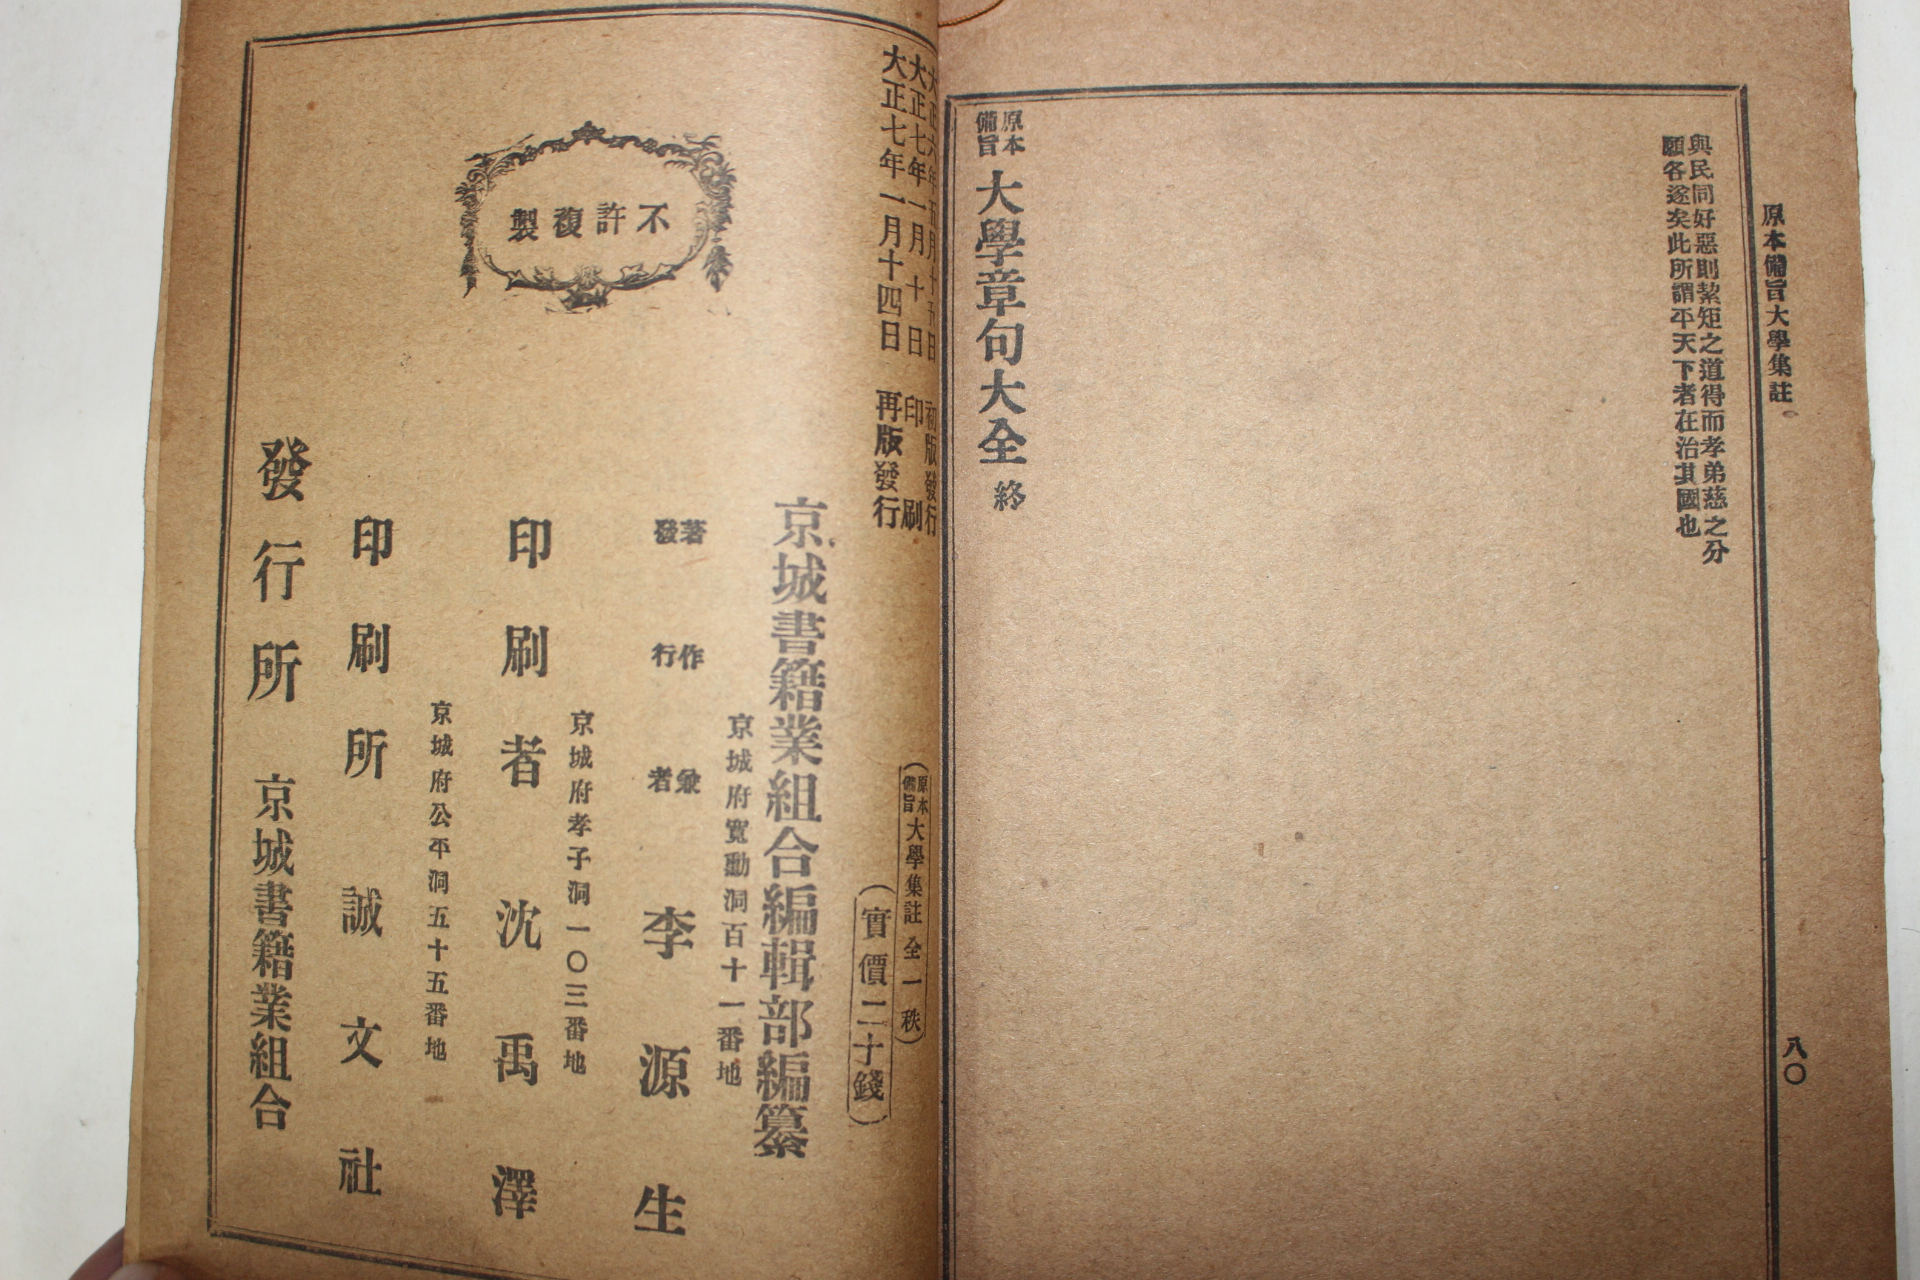 原本備旨大學集註
八〇
與民同好惡則絜矩之道得而孝弟慈之分
願各遂矣此所謂平天下者在治其國也
原本備旨 大學章句大全 終
大正六年五月十五日 初版發行
大正七年一月十日 印刷
大正七年一月十四日 再版發行
(原本備旨 大學集註 全一秩)
(實價二十錢)
不許複製
京城書籍業組合編輯部編纂
京城府寬勳洞百十一番地
著作兼發行者 李源生
京城府孝子洞一〇三番地
印刷者 沈禹澤
京城府公平洞五十五番地
印刷所 誠文社
發行所 京城書籍業組合